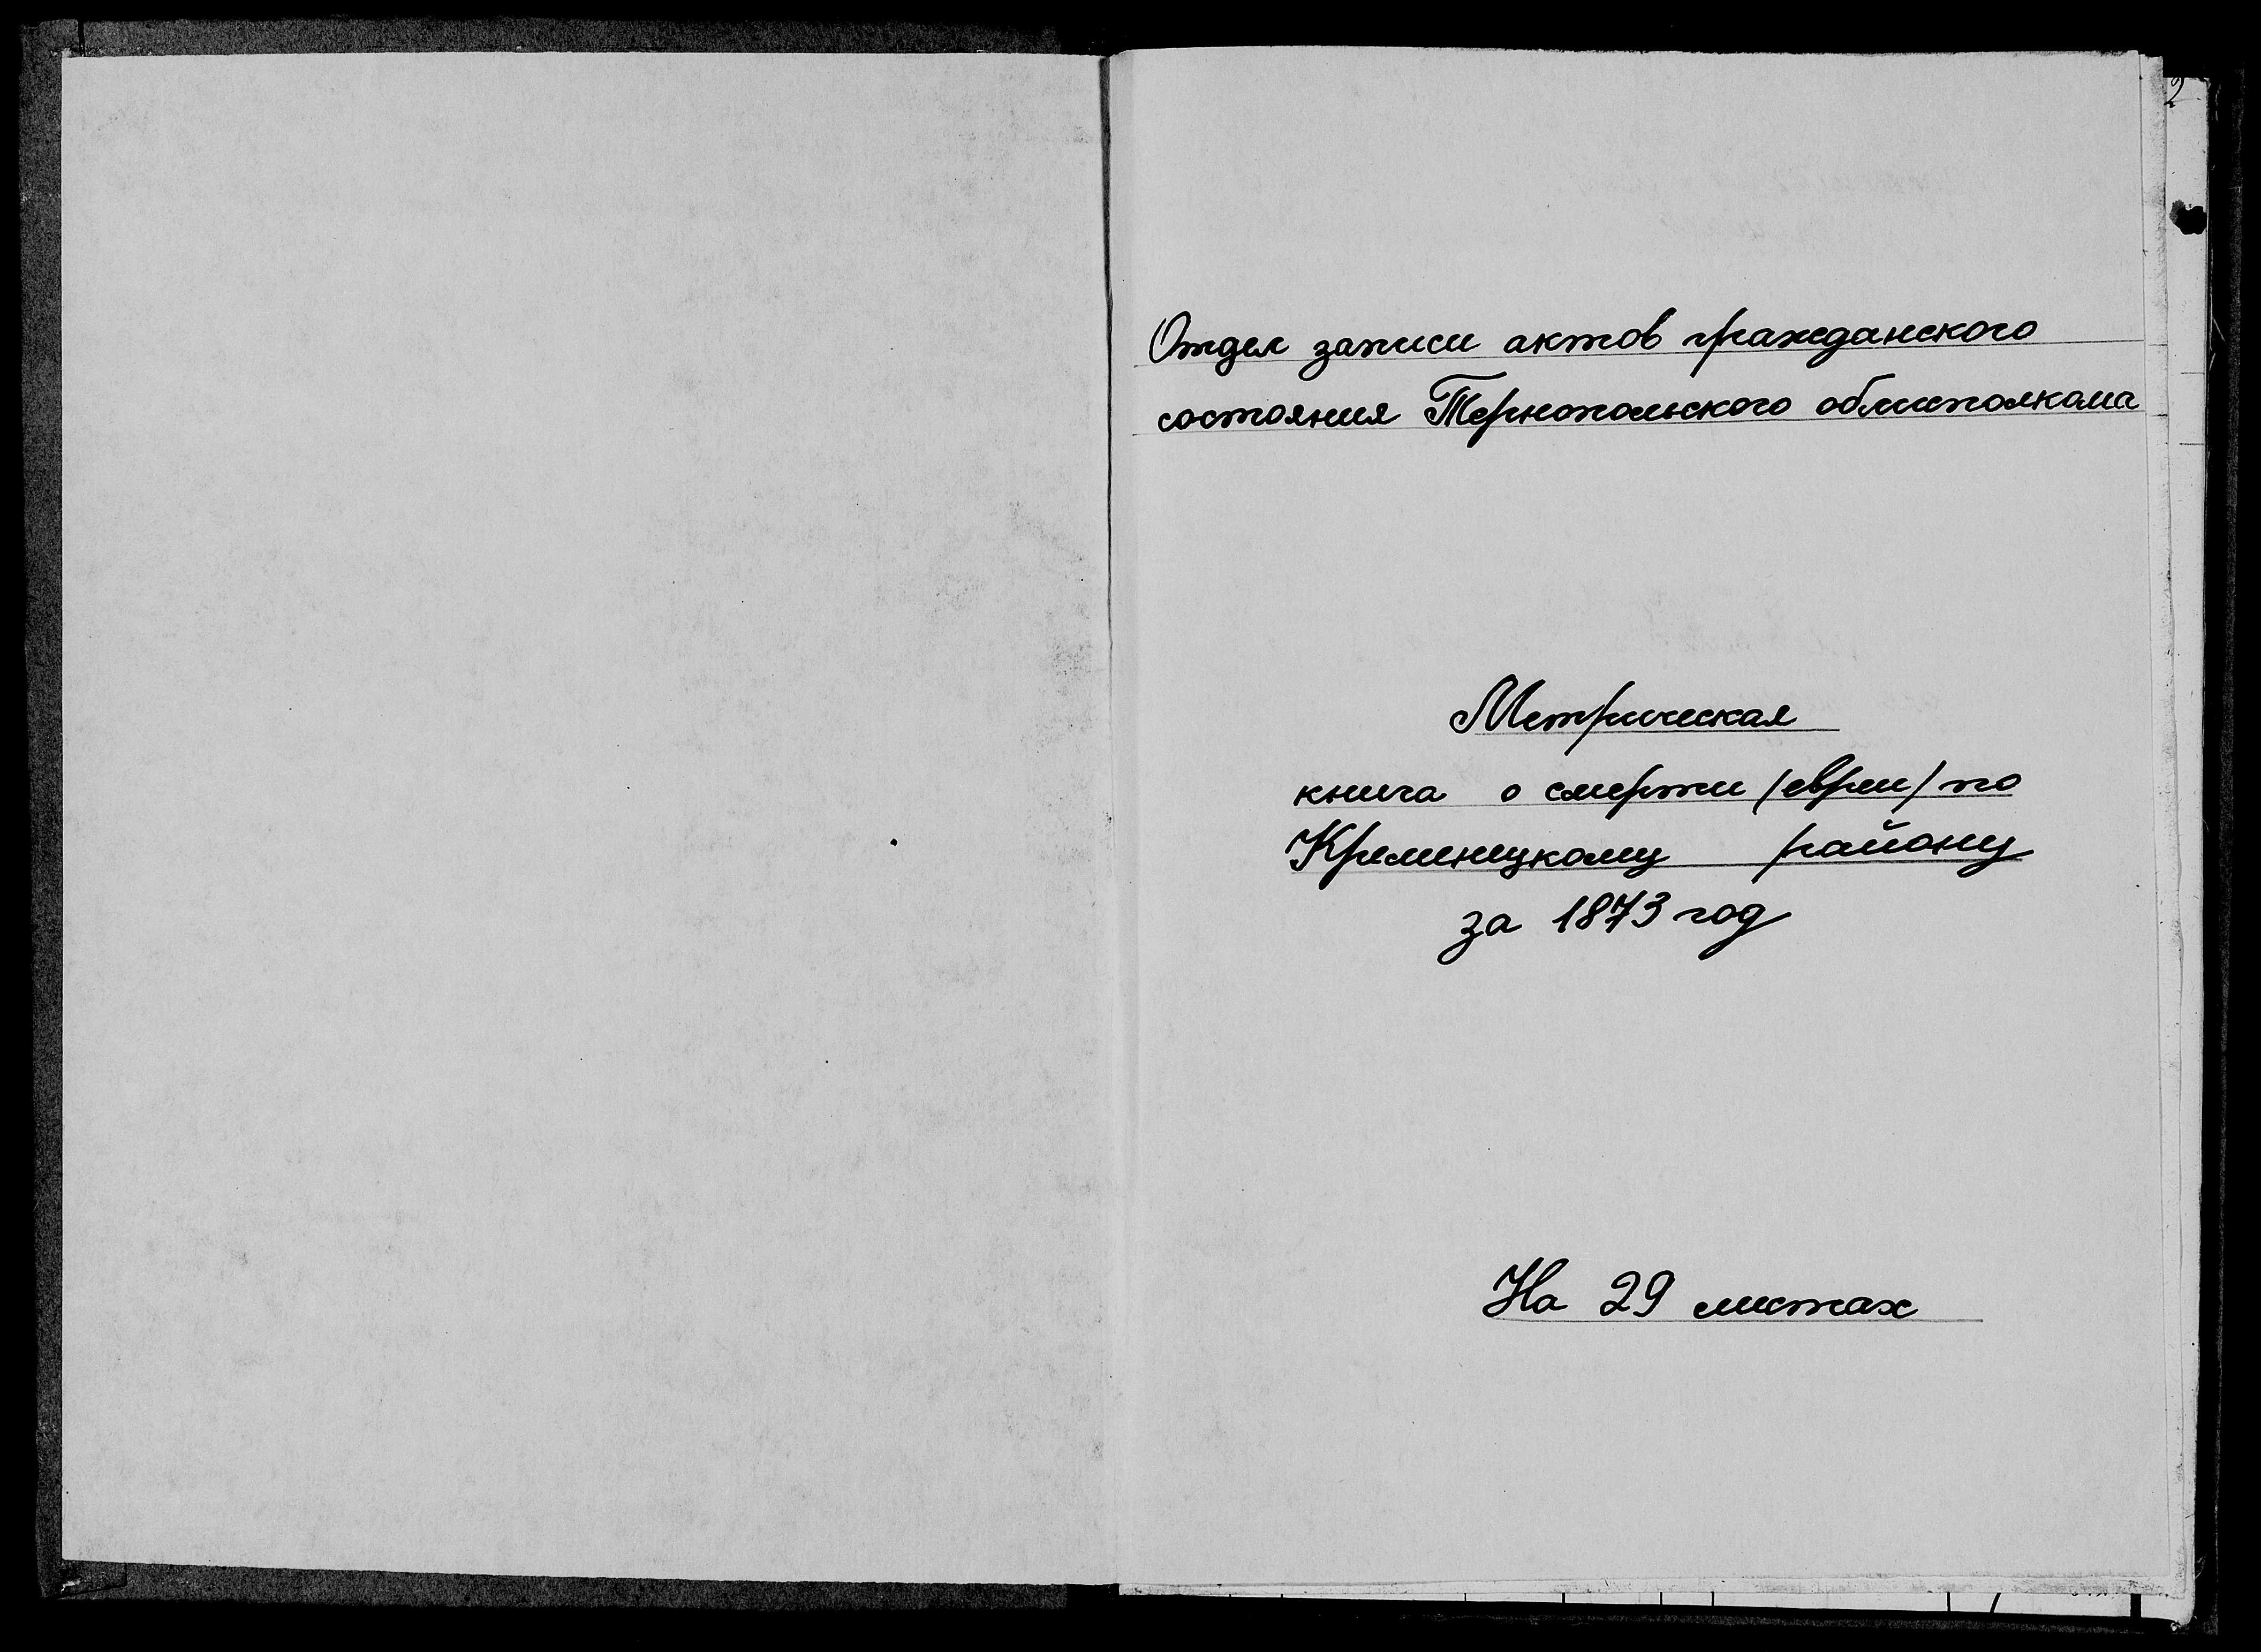 2
Отдел записи актов гражданского
состояния Тернопольского облисполкома
Метрическая
книга о смерти /евреи/ по
Кременецкому району
за 1873 год
На 29 листах